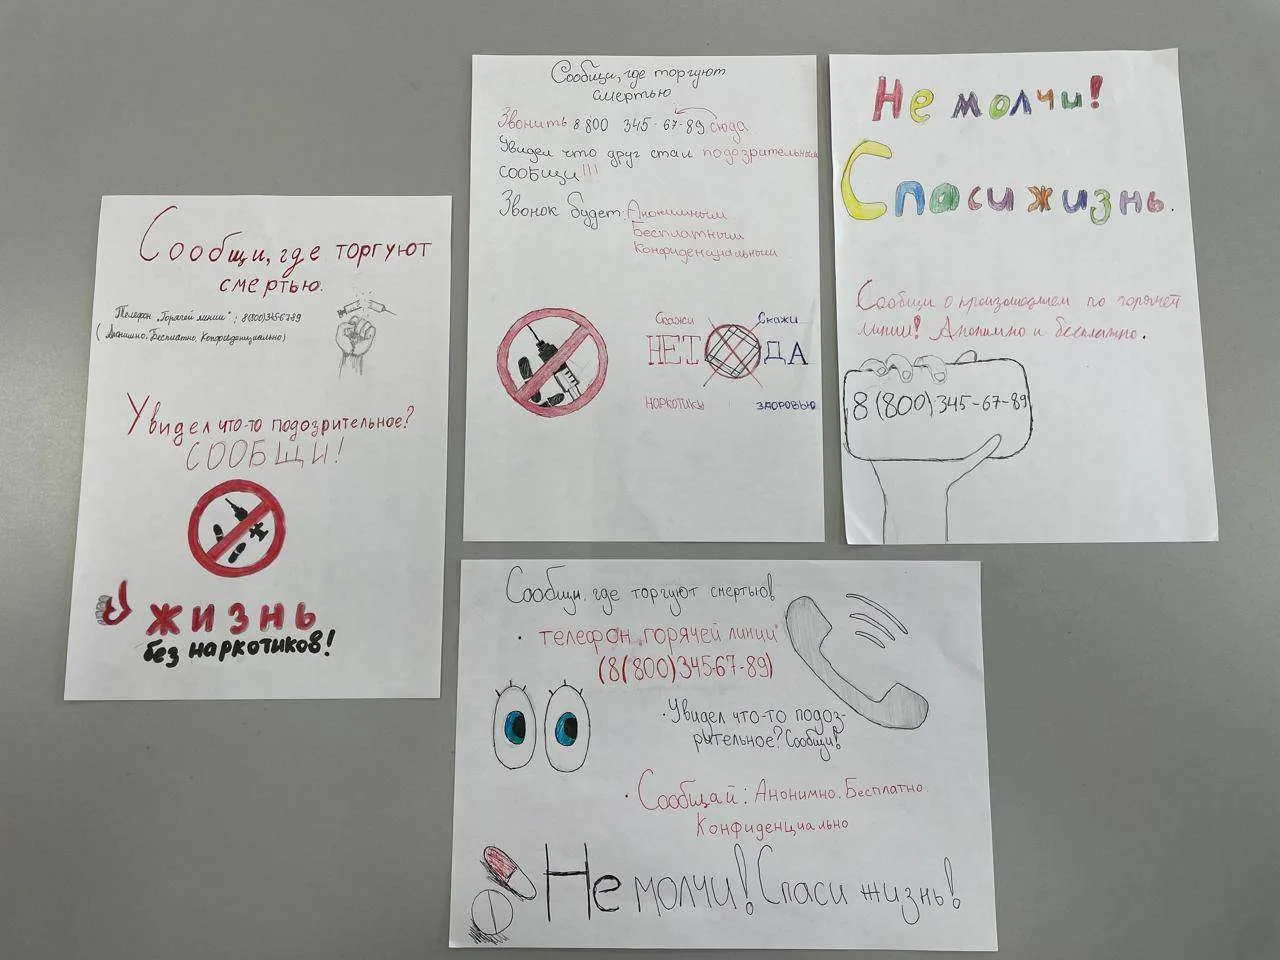 Сообщи, где торгуют
смертью.
Телефон "Горячей линии": 8(800)3456789
(Анонимно. Бесплатно. Конфиденциально)
Увидел что-то подозрительное?
СООБЩИ!
ЖИЗНЬ
без наркотиков!
Сообщи, где торгуют
смертью
Звонить 8 800 345-67-89 сюда
Увидел что друг стал подозрительным
сообщи!!!
Звонок будет: Анонимным
Бесплатным
Конфиденциальным
Скажи Скажи
НЕТ ДА
наркотику здоровью
Не молчи!
Спаси жизнь.
Сообщи о произошедшем по горячей
линии! Анонимно и бесплатно.
8(800)345-67-89
Сообщи, где торгуют смертью!
• телефон "горячей линии"
(8(800)345-67-89)
• Увидел что-то подоз-
рительное? Сообщи!
• Сообщай: Анонимно. Бесплатно.
Конфиденциально
Не молчи! Спаси жизнь!